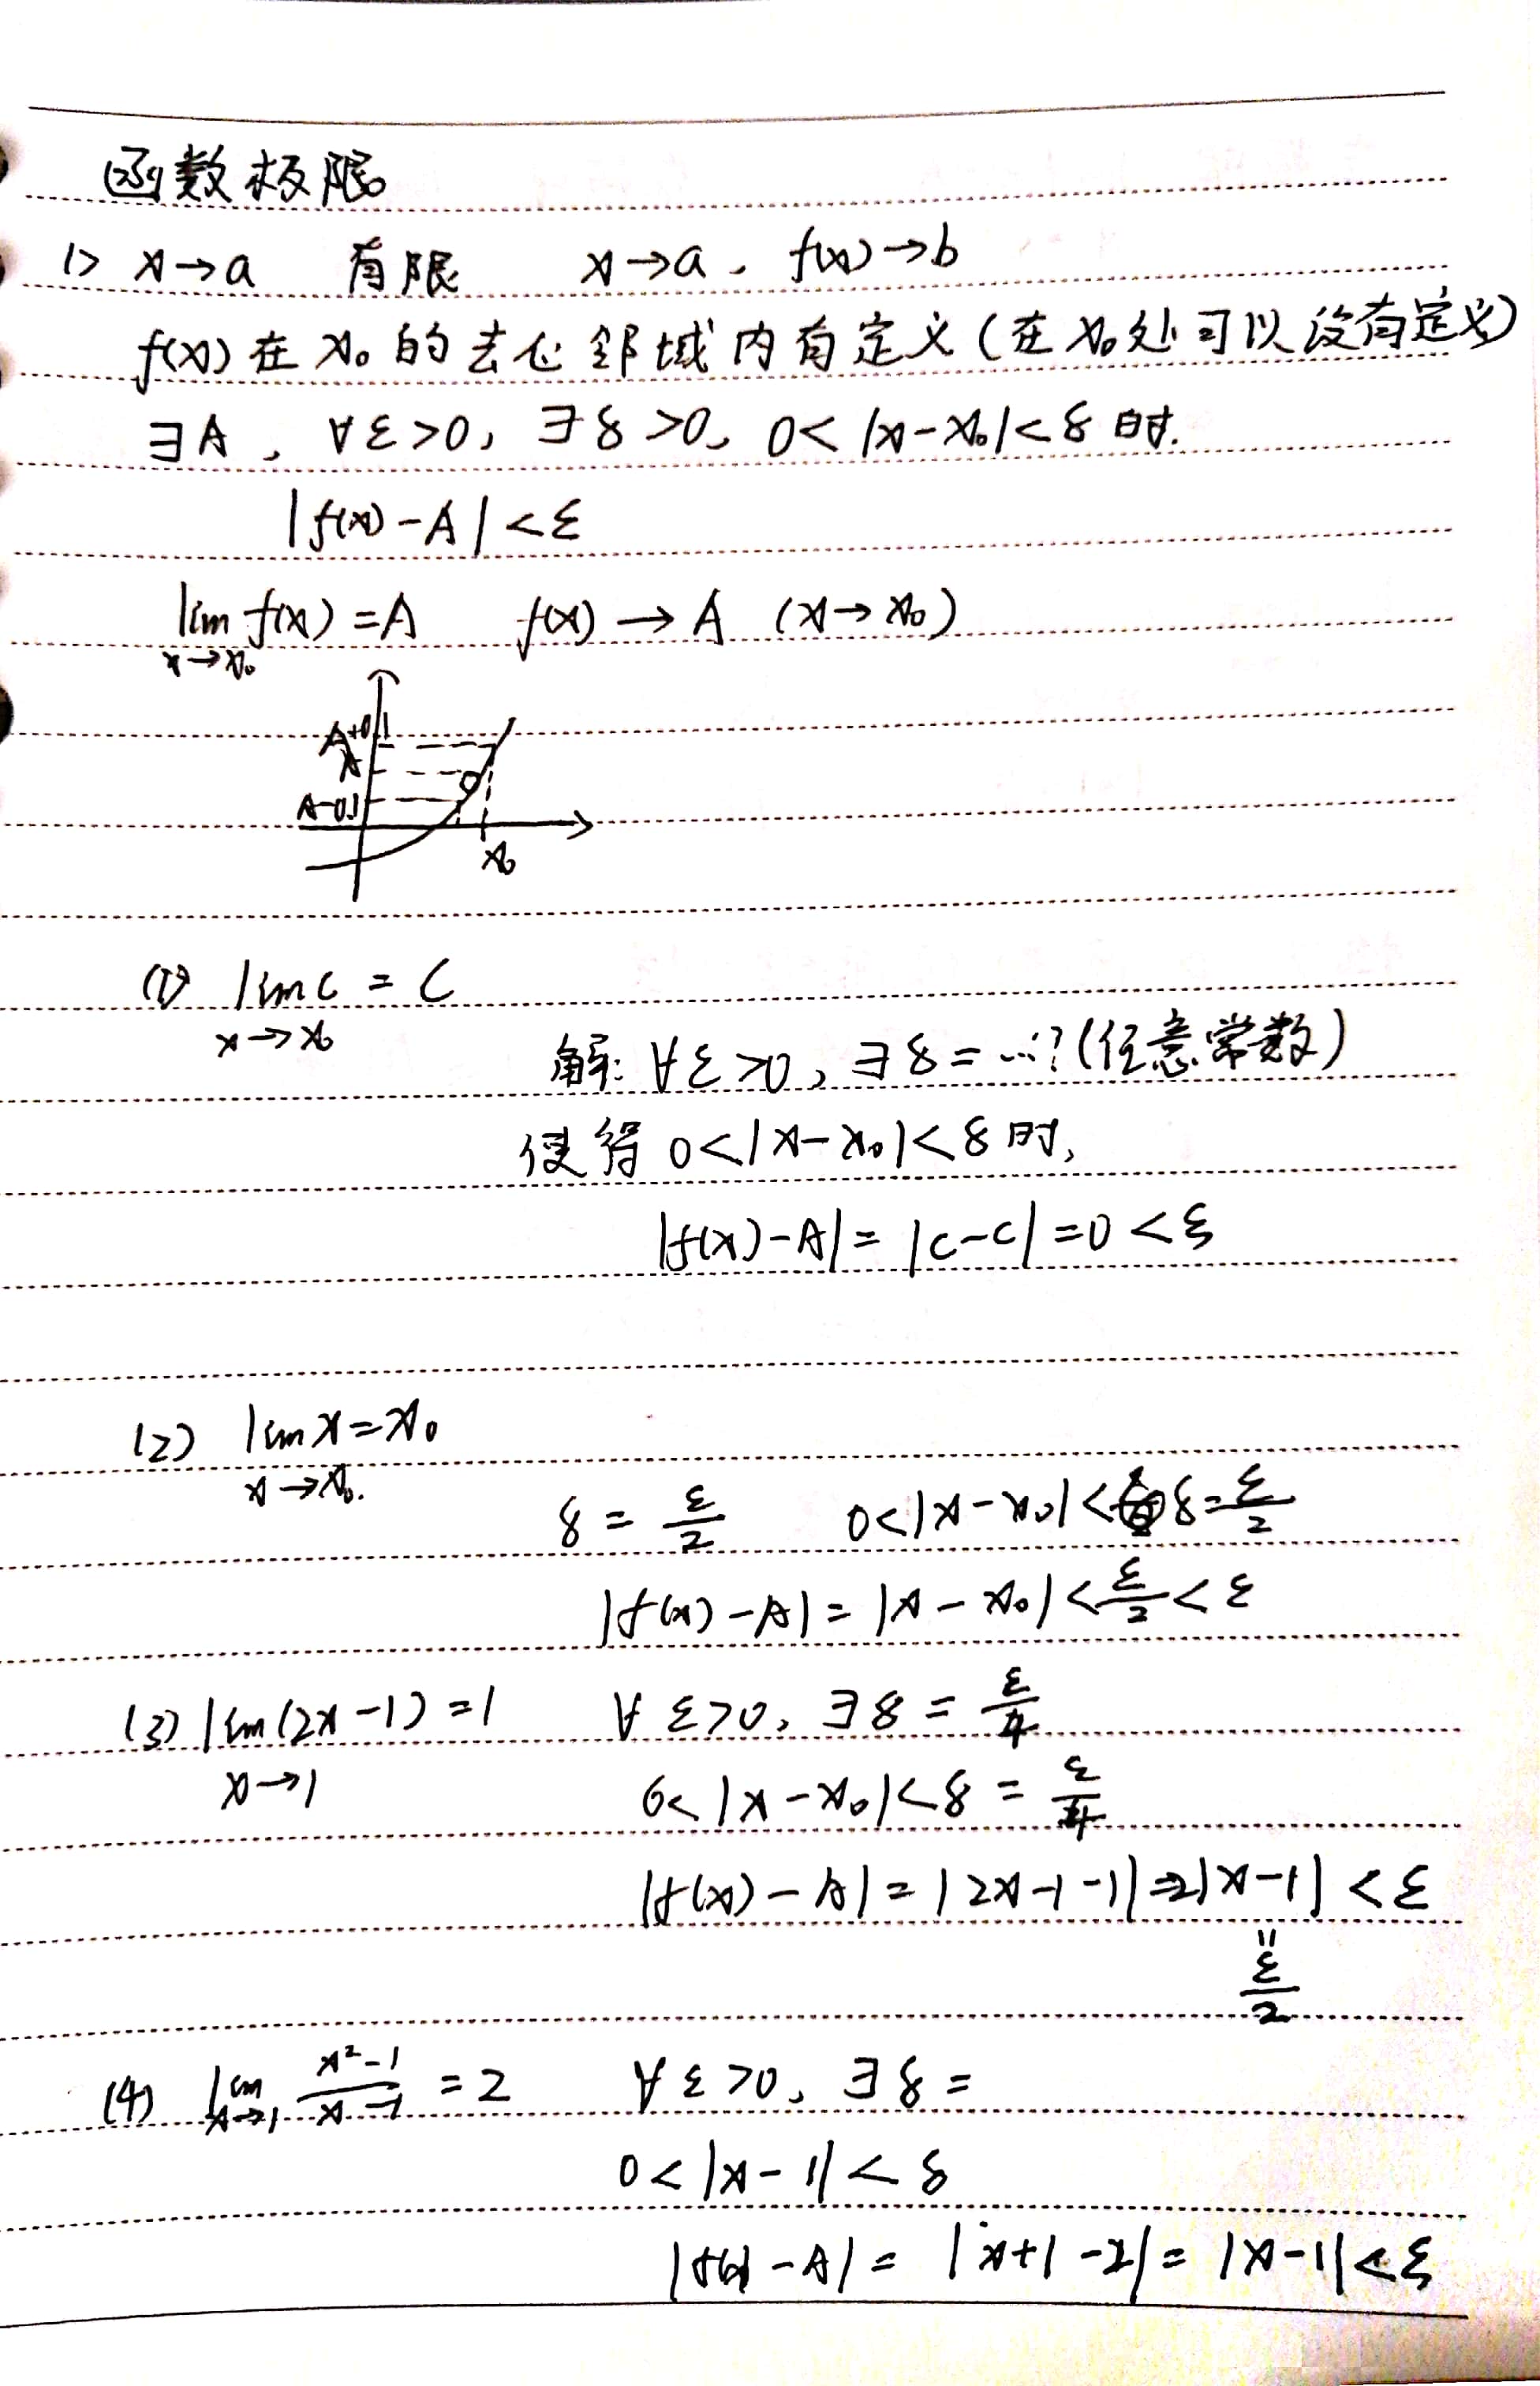 函数极限
1> x→a 有限 x→a, f(x)→b
f(x) 在 x₀ 的去心邻域内有定义(在 x₀处可以没有定义)
∃A, ∀ε>0, ∃δ>0, 0<|x-x₀|<δ 时.
|f(x)-A|<ε
lim f(x)=A f(x)→A (x→x₀)
x→x₀
A+0.1
A
A-0.1
x₀
(1) lim c = C
x→x₀
解: ∀ε>0, ∃δ=…?(任意常数)
使得 0<|x-x₀|<δ时,
|f(x)-A|=|c-c|=0<ε
(2) lim x=x₀
x→x₀.
δ=ε/2 0<|x-x₀|<δ=ε/2
|f(x)-A|=|x-x₀|<ε/2<ε
(3) lim(2x-1)=1 ∀ε>0, ∃δ=ε/4
x→1
0<|x-x₀|<δ=ε/4
|f(x)-A|=|2x-1-1|=2|x-1|<ε
=
ε/2
(4) lim x→1 x²-1/x-1 =2 ∀ε>0, ∃δ=
0<|x-1|<δ
|f(x)-A|=|x+1-2|=|x-1|<ε